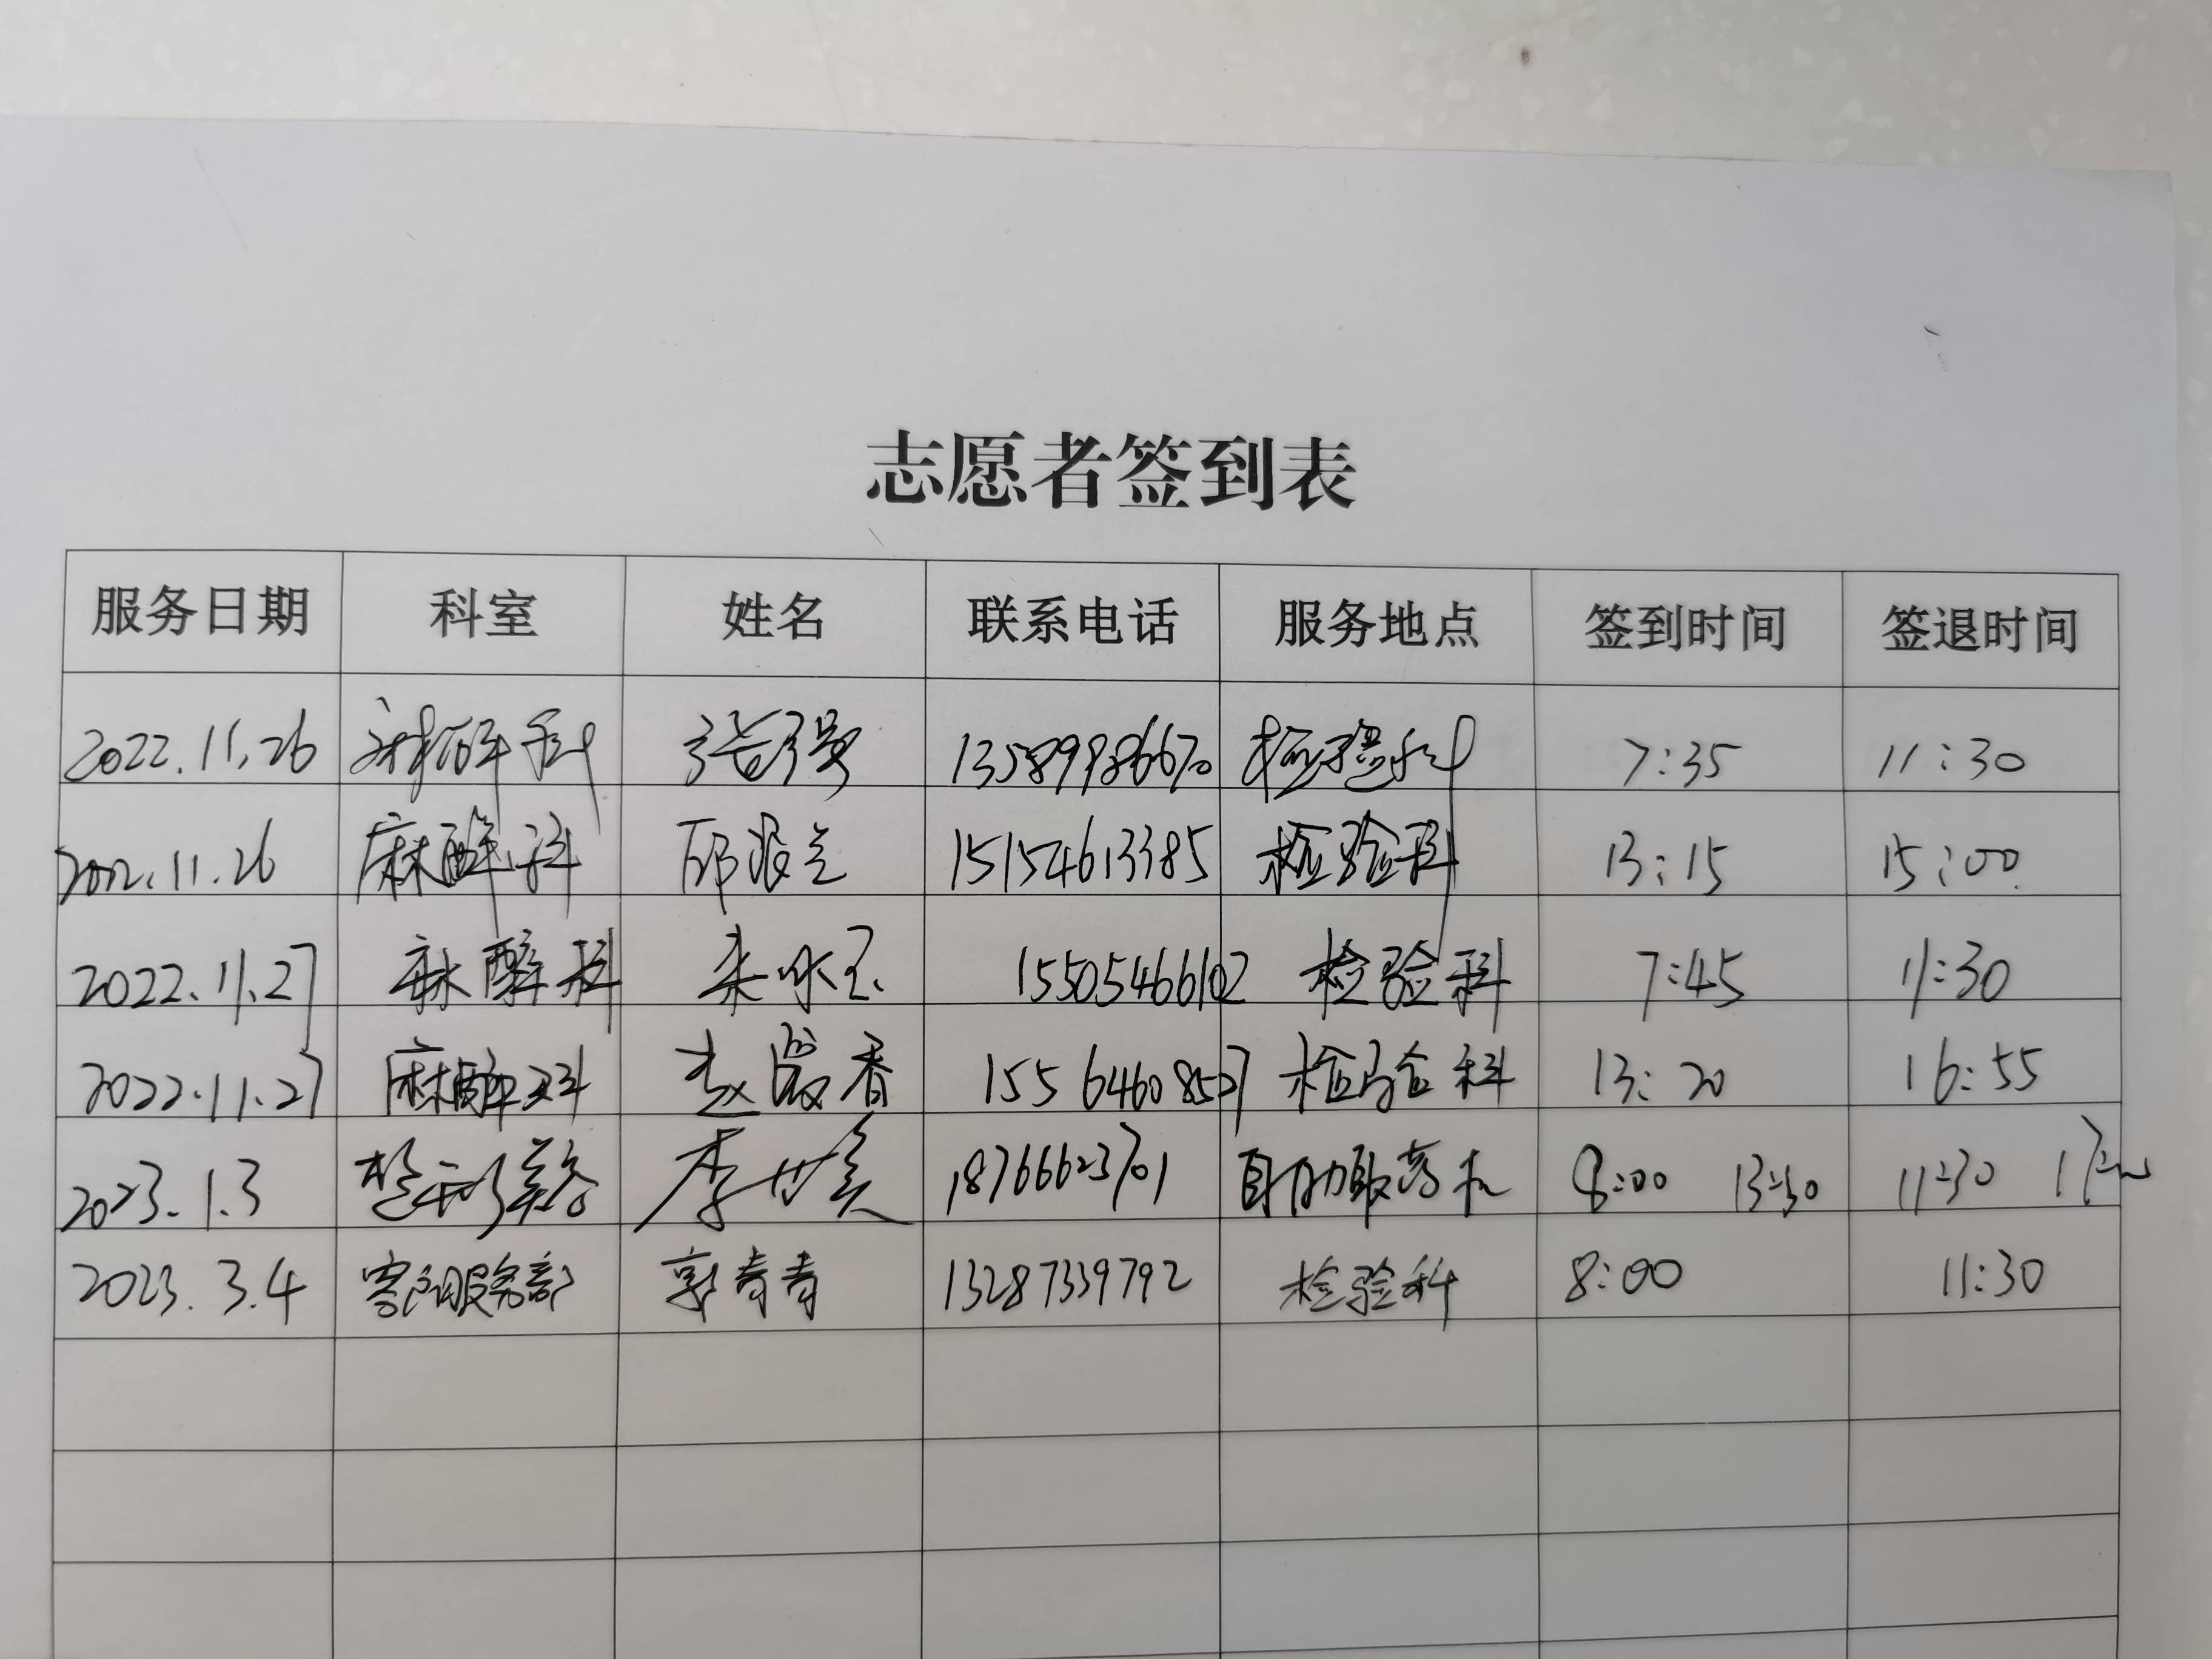 志愿者签到表
服务日期 科室 姓名 联系电话 服务地点 签到时间 签退时间
2022.11.26 麻醉科 张强 13589986670 检验科 7:35 11:30
2022.11.26 麻醉科 邱 15154613385 检验科 13:15 15:00
2022.11.27 麻醉科 朱咏玉 15505466102 检验科 7:45 11:30
2022.11.27 麻醉科 赵 香 15564608527 检验科 13:20 16:55
2023.1.3 李 18766623701 自助取药机 8:00 13:30 11:30 17:00
2023.3.4 客户服务部 郭青青 13287339792 检验科 8:00 11:30